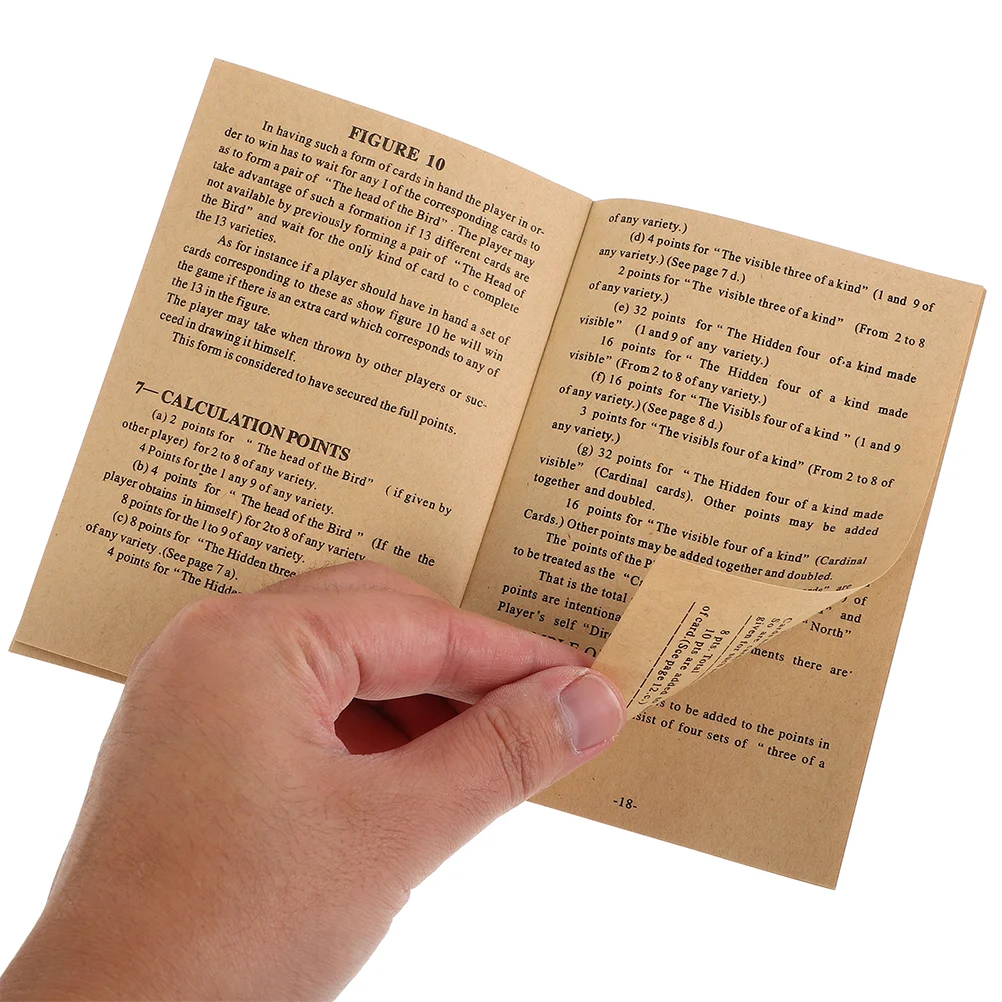 FIGURE 10
In having such a form of cards in hand the player in or-
der to win has to wait for any I of the corresponding cards to
as to form a pair of "The head of the Bird". The player may
take advantage of such a formation if 13 different cards are
not available by previously forming a pair of "The Head of
the Bird" and wait for the only kind of card to c complete
the 13 varieties.
As for instance if a player should have in hand a set of
cards corresponding to these as show figure 10 he will win
the game if there is an extra card which corresponds to any of
the 13 in the figure.
The player may take when thrown by other players or suc-
ceed in drawing it himself.
This form is considered to have secured the full points.
7—CALCULATION POINTS
(a) 2 points for "The head of the Bird" (if given by
other player) for 2 to 8 of any variety.
4 Points for the 1 any 9 of any variety.
(b) 4 points for "The head of the Bird" (If the the
player obtains in himself) for 2to 8 of any variety
8 points for the 1 to 9 of any variety.
(c) 8 points for "The Hidden three
of any variety .(See page 7 a).
4 points for "The Hidde
of any variety.)
(d) 4 points for "The visible three of a kind" (1 and 9 of
any variety.) (See page 7 d.)
2 points for "The visible three of a kind" (From 2 to 8
of any variety.)
(e) 32 points for "The Hidden four of a kind made
visible" (1 and 9 of any variety.)
16 points for "The Hidden four of a kind made
visible" (From 2 to 8 of any variety.)
(f) 16 points for "The Visibls four of a kind" (1 and 9
of any variety.) (See page 8 d.)
3 points for "The visibls four of a kind" (From 2 to 8 of
any variety.)
(g) 32 points for "The Hidden four of a kind made
visible" (Cardinal cards). Other points may be added
together and doubled.
16 points for "The visible four of a kind" (Cardinal
Cards.) Other points may be added together and doubled.
The points of the
to be treated as the are 9 of
That is the total and
points are intentiona "North"
Player's self "Dir
ments there are:
8 pts. Total
10 pts are added
of card (See page 12. c)
s to be added to the points in
sist of four sets of "three of a
-18-